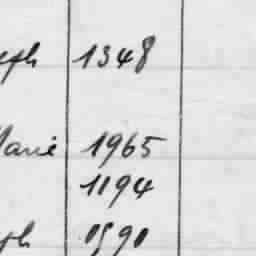 eph 1348
Marie 1965
1194
ph 1591